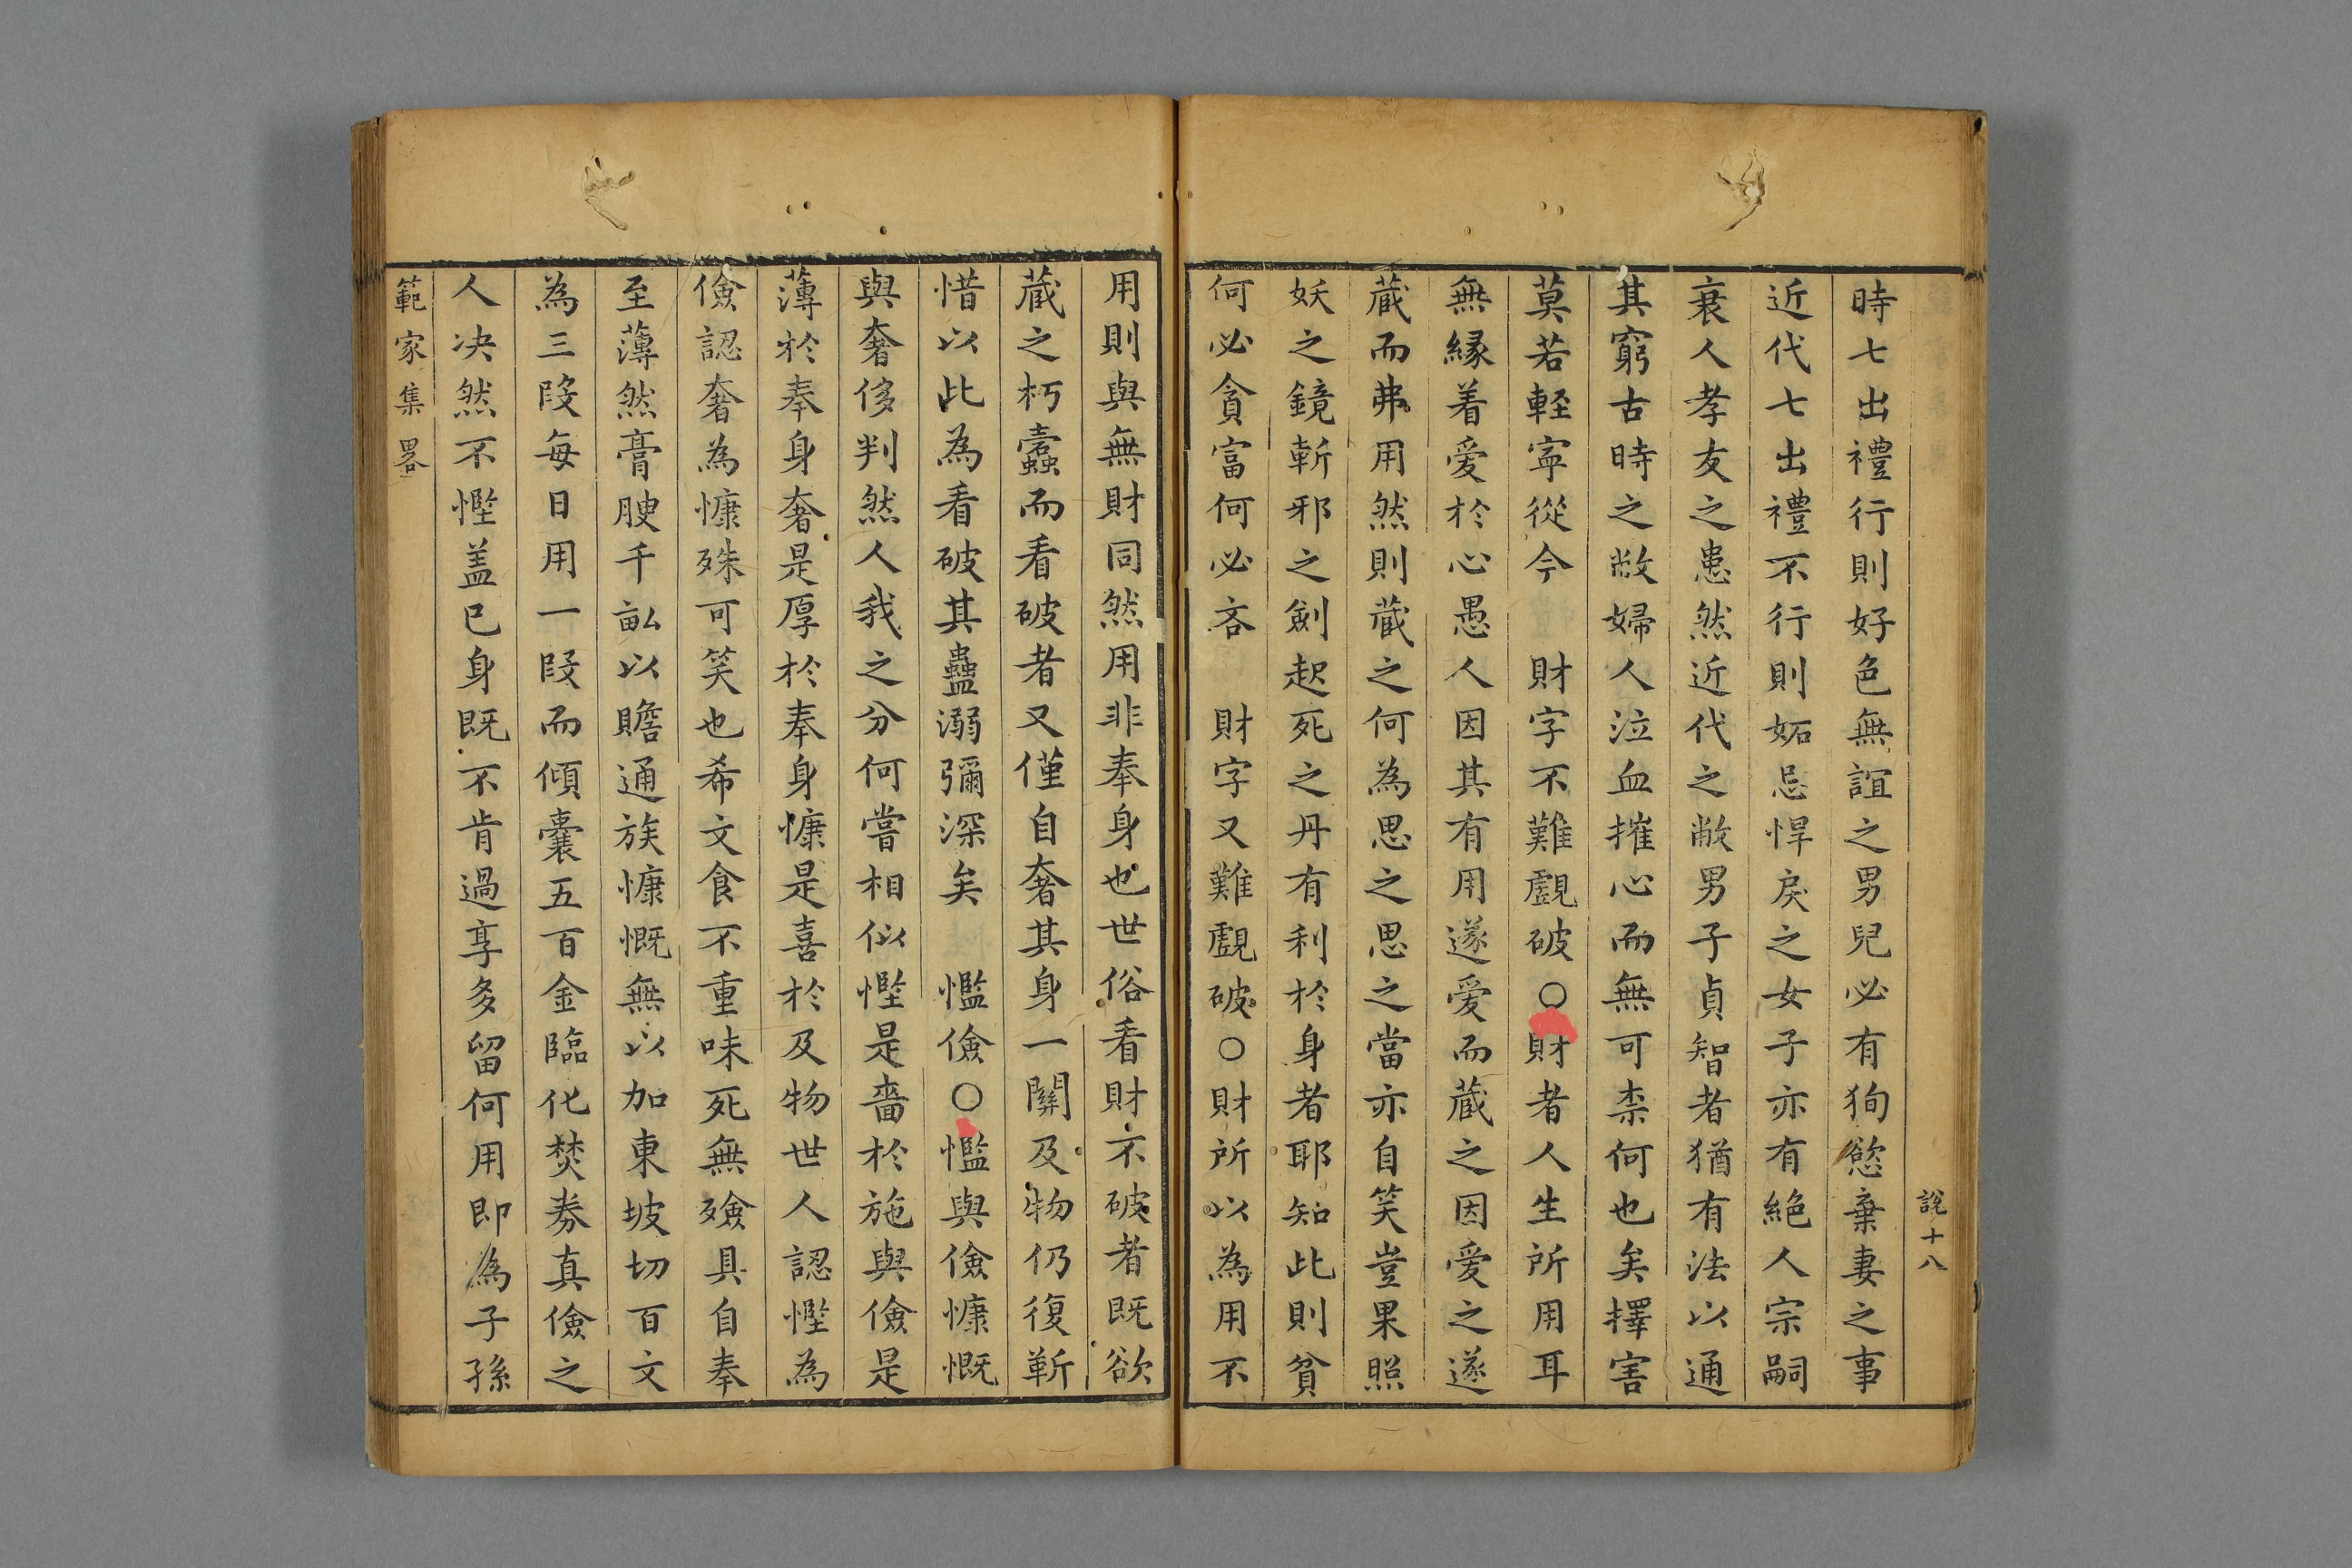 說十八
時七出禮行則好色無誼之男兒必有狥慾棄妻之事
近代七出禮不行則妬忌悍戾之女子亦有絕人宗嗣
衰人孝友之患然近代之敝男子貞智者猶有法以通
其窮古時之敝婦人泣血摧心而無可柰何也矣擇害
莫若輕寜從今 財字不難覷破○財者人生所用耳
無緣着愛於心愚人因其有用遂愛而藏之因愛之遂
藏而弗用然則藏之何為思之思之當亦自笑豈果照
妖之鏡斬邪之劍起死之丹有利於身者耶知此則貧
何必貪富何必吝 財字又難覷破○財所以為用不
用則與無財同然用非奉身也世俗看財不破者既欲
藏之朽蠹而看破者又僅自奢其身一關及物仍復靳
惜以此為看破其蠱溺彌深矣 慳儉○慳與儉慷慨
與奢侈判然人我之分何嘗相似慳是嗇於施與儉是
薄於奉身奢是厚於奉身慷是喜於及物世人認慳為
儉認奢為慷殊可笑也希文食不重味死無殮具自奉
至薄然膏腴千畝以贍通族慷慨無以加東坡切百文
為三段每日用一段而傾囊五百金臨化焚券真儉之
人决然不慳盖已身既不肯過享多留何用即為子孫
範家集畧